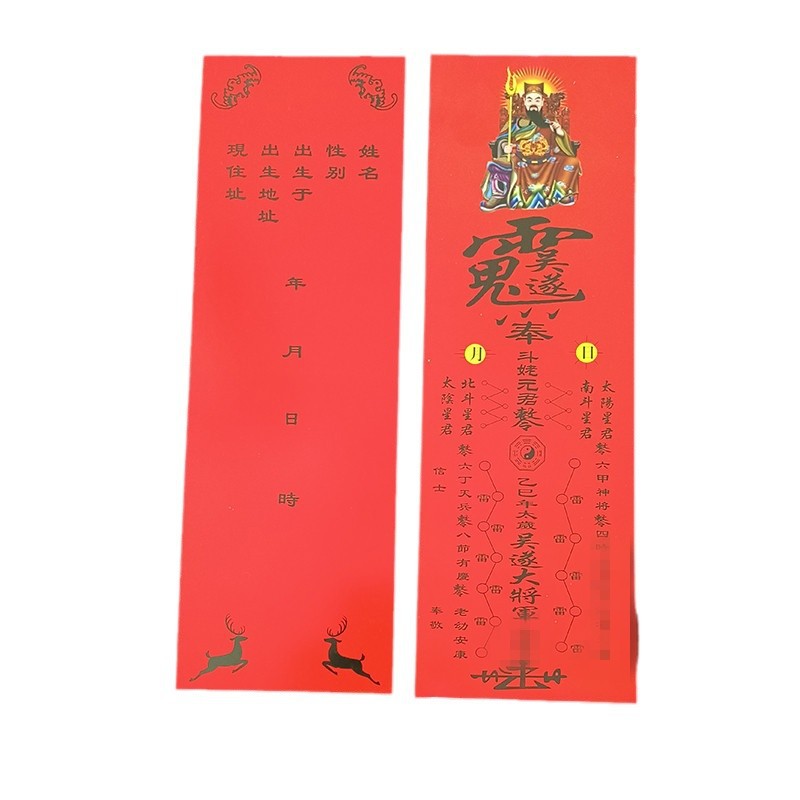 姓名
性別
出生于
出生地址
現住址
年
月
日
時
吳遂
奉
日
月
斗姥元君
太陽星君
南斗星君
北斗星君
太陰星君
六甲神将
四
乙巳年太歲吳遂大將軍
六丁天兵
八節有慶
老幼安康
信士
奉敬
雷
雷
雷
雷
雷
雷
雷
雷
雷